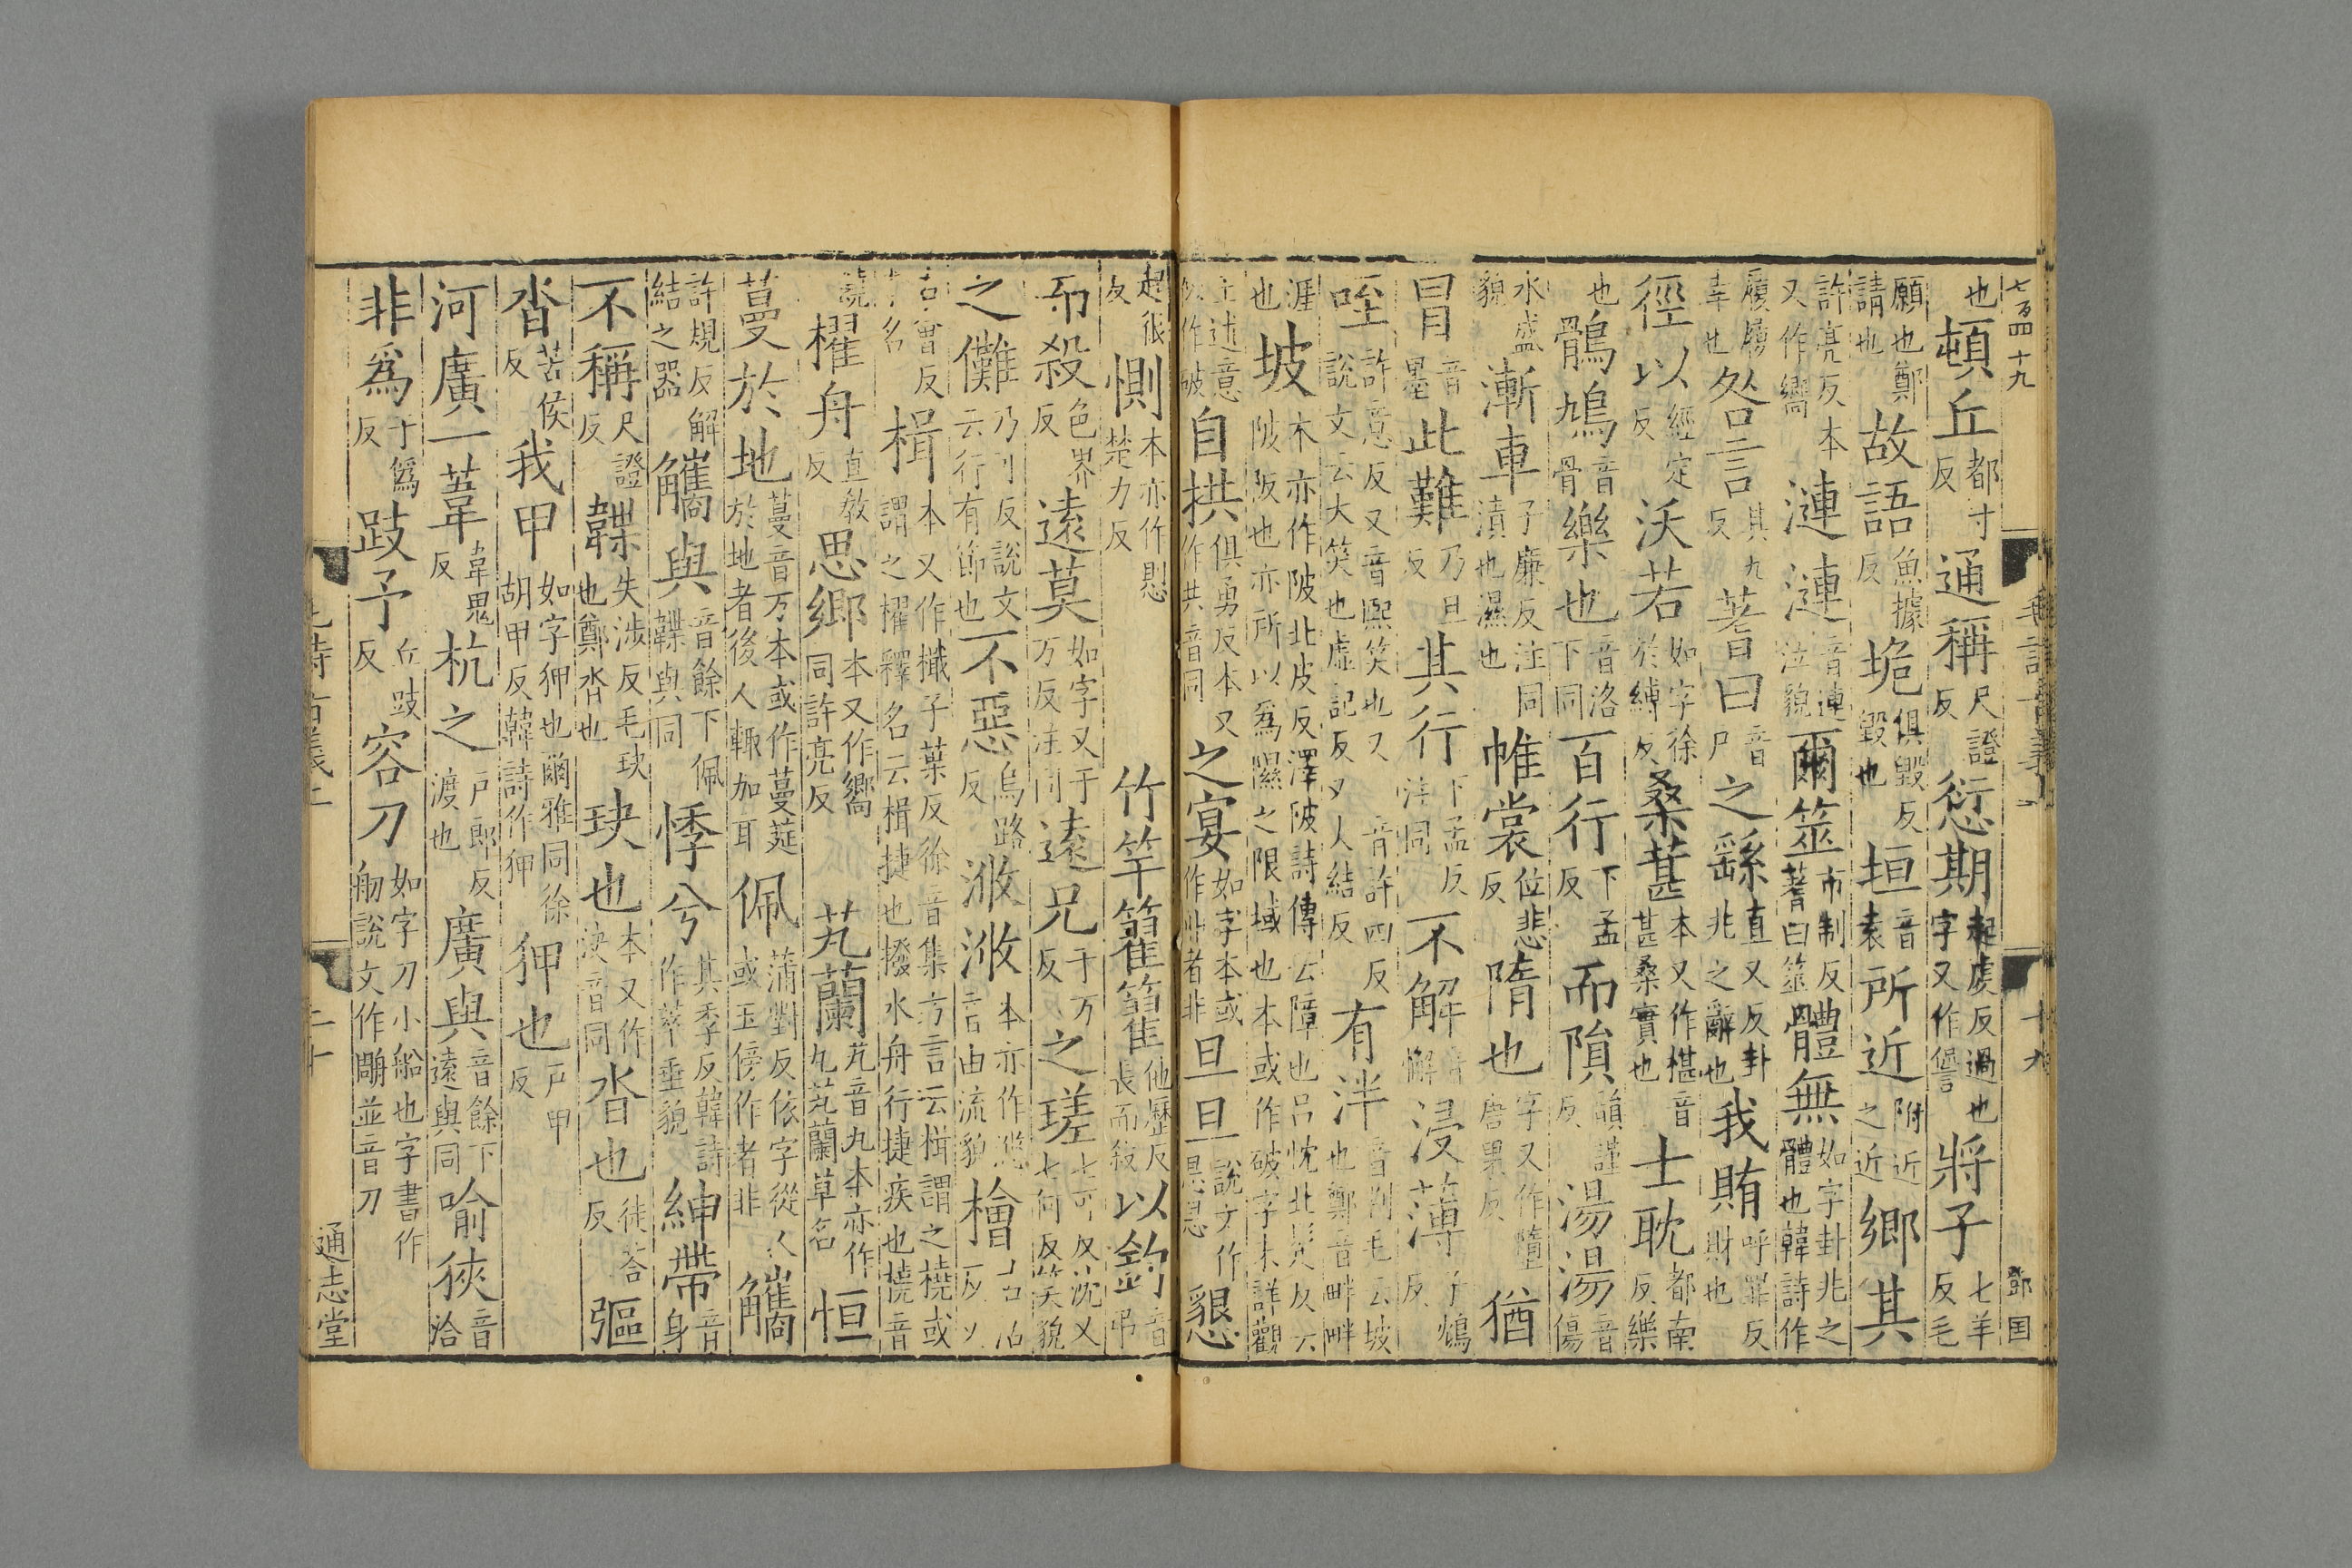 七百四十九
也頓丘都寸反通稱尺證反愆期起虔反過也字又作諐將子七羊反毛
願也鄭請也故語魚據反垝俱毀反毀也垣音袁所近附近之近鄉其
許亮反本又作嚮漣漣音連泣貌爾筮市制反蓍曰筮體無如字卦兆之體也韓詩作
履履幸也咎言其九反蓍曰音尸之繇直又反卦兆之辭也我賄呼罪反財也
徑以經定反沃若如字徐於縛反桑葚本又作椹音甚桑實也士耽都南反樂
也鶻鳩音骨樂也音洛下同百行下孟反而隕韻謹反湯湯音傷
水盛貌漸車子廉反注同漬也濕也帷裳位悲反隋也字又作墮唐果反猶
冒音墨此難乃旦反其行下孟反注同不解音懈浸薄子鴆反
咥許意反又音熙笑也又音許四反說文云大笑也虛記反又大結反有泮音判毛云坡也鄭音畔畔
涯也坡本亦作陂北皮反澤陂詩傳云障也呂忱北髲反云陂阪也亦所以為隰之限域也本或作破字未詳觀
王述意似作破自拱俱勇反本又作共音同之宴如字本或作丱者非旦旦說文作懇
毛詩音義上 十九 鄧国
起很反惻本亦作楚力反竹竿籊籊他歷反長而殺以釣音弔
而殺色界反遠莫如字又于万反注同遠兄于万反之瑳七可反沈又七何反笑貌
之儺乃可反說文云行有節也不惡烏路反滺滺本亦作音由流貌檜古活反又
古會反木名楫本又作檝子葉反徐音集方言云楫謂之橈或謂之櫂釋名云楫捷也撥水舟行捷疾也橈音
饒櫂舟直教反思鄉本又作嚮同許亮反芄蘭芄音丸本亦作丸芄蘭草名恒
蔓於地蔓音万本或作蔓莚於地者後人輒加耳佩蒲對反依字從人或玉傍作者非觿
許規反解結之器觿與音餘下佩韘與同悸兮其季反韓詩作萃垂貌紳帶音身
不稱尺證反韘失涉反毛玦也鄭沓也玦也本又作決音同沓也徒荅反彄
沓苦侯反我甲如字狎也爾雅同徐胡甲反韓詩作狎狎也戶甲反
河廣一葦韋鬼反杭之戶郎反渡也廣與音餘下遠與同喻狹音洽
非為于偽反跂予丘豉反容刀如字刀小船也字書作舠說文作䑠並音刀
毛詩音義上 二十 通志堂